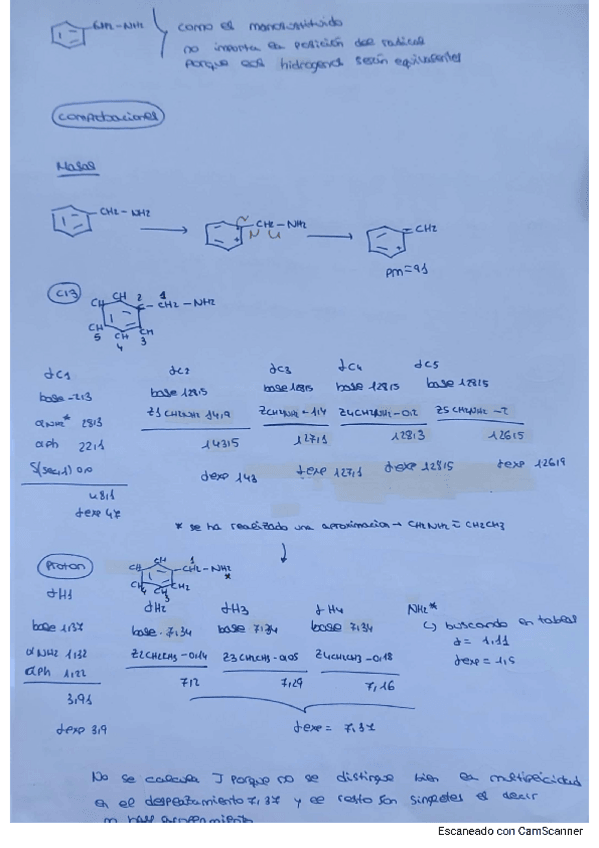 CH2-NH2
como es monosustituido
no importa la posición del radical
porque los hidrogenos serán equivalentes
comprobaciones
Masas
CH2-NH2
CH2-NH2
CH2
pm=91
C13
CH CH 2 1 CH2-NH2
CH CH CH
5 4 3
δC1 δC2 δC3 δC4 δC5
base -2,3 base 128,5 base 128,5 base 128,5 base 128,5
αNH2* 28,3 Z1CH2NH2 14,9 Z3CH2NH2 -1,4 Z4CH2NH2 -0,2 Z5CH2NH2 -2
αph 22,1 143,5 127,1 128,3 126,5
S(sec,1) 0,0 δexp 143 δexp 127,1 δexp 128,5 δexp 126,9
48,1
δexp 47
* se ha realizado una aproximacion → CH2NH2 ≈ CH2CH3
Proton
CH CH 1 CH2-NH2*
δH1 δH2 δH3 δH4 NH2*
base 1,37 base 7,34 base 7,34 base 7,34 ↳ buscando en tablas
αNH2 1,32 Z2CH2CH3 -0,14 Z3CH2CH3 -0,05 Z4CH2CH3 -0,18 δ= 1,11
αph 1,22 7,2 7,29 7,16 δexp = 1,5
3,91
δexp 3,9 δexp = 7,37
No se calcula J porque no se distingue bien la multiplicidad
en el desplazamiento 7,37 y el resto son singletes es decir
Escaneado con CamScanner